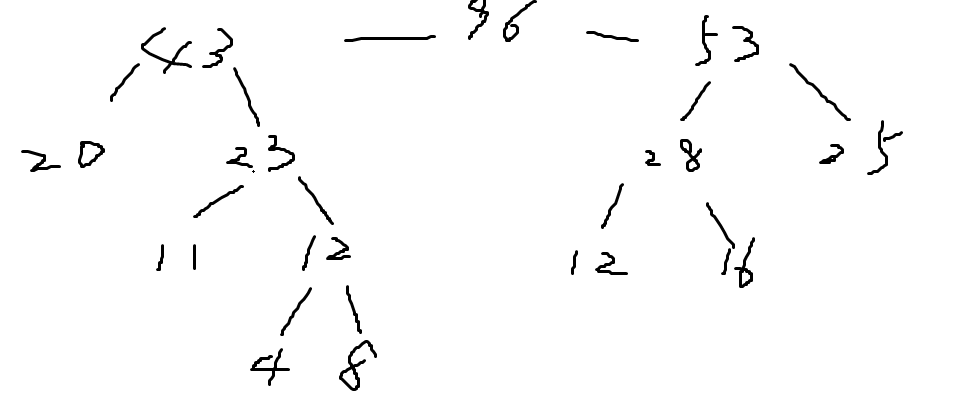 43 96 53
20 23 28 25
11 12 12 16
4 8